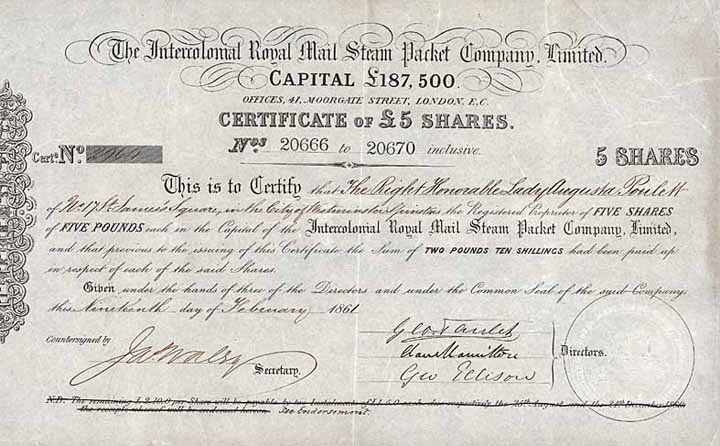 The Intercolonial Royal Mail Steam Packet Company, Limited.
CAPITAL £187,500.
OFFICES, 41, MOORGATE STREET, LONDON, E.C.
CERTIFICATE OF £5 SHARES.
Nos 20666 to 20670 inclusive.
Certe. No.
5 SHARES
This is to Certify that The Right Honorable Lady Augusta Poulett
of No 17 St. James's Square, in the City of Westminster is the Registered Proprietor of FIVE SHARES
of FIVE POUNDS each in the Capital of the Intercolonial Royal Mail Steam Packet Company, Limited,
and that previous to the issuing of this Certificate the Sum of TWO POUNDS TEN SHILLINGS had been paid up
in respect of each of the said Shares.
Given under the hands of three of the Directors and under the Common Seal of the said Company,
this Nineteenth day of February 1861
Countersigned by
Secretary.
Hamilton
Geo Ellison
Directors.
N.B. The remaining £2.10.0 per Share will be payable by two Instalments of £1.5.0 each due respectively the 25th August and the 24th December 1860
the receipts whereof will be endorsed hereon. See Endorsement.